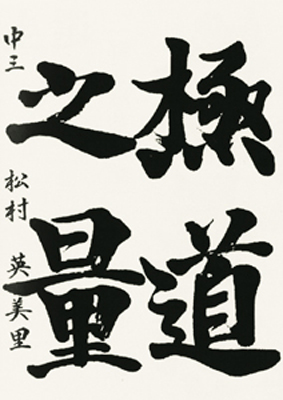 極道
之量
中三 松村英美里